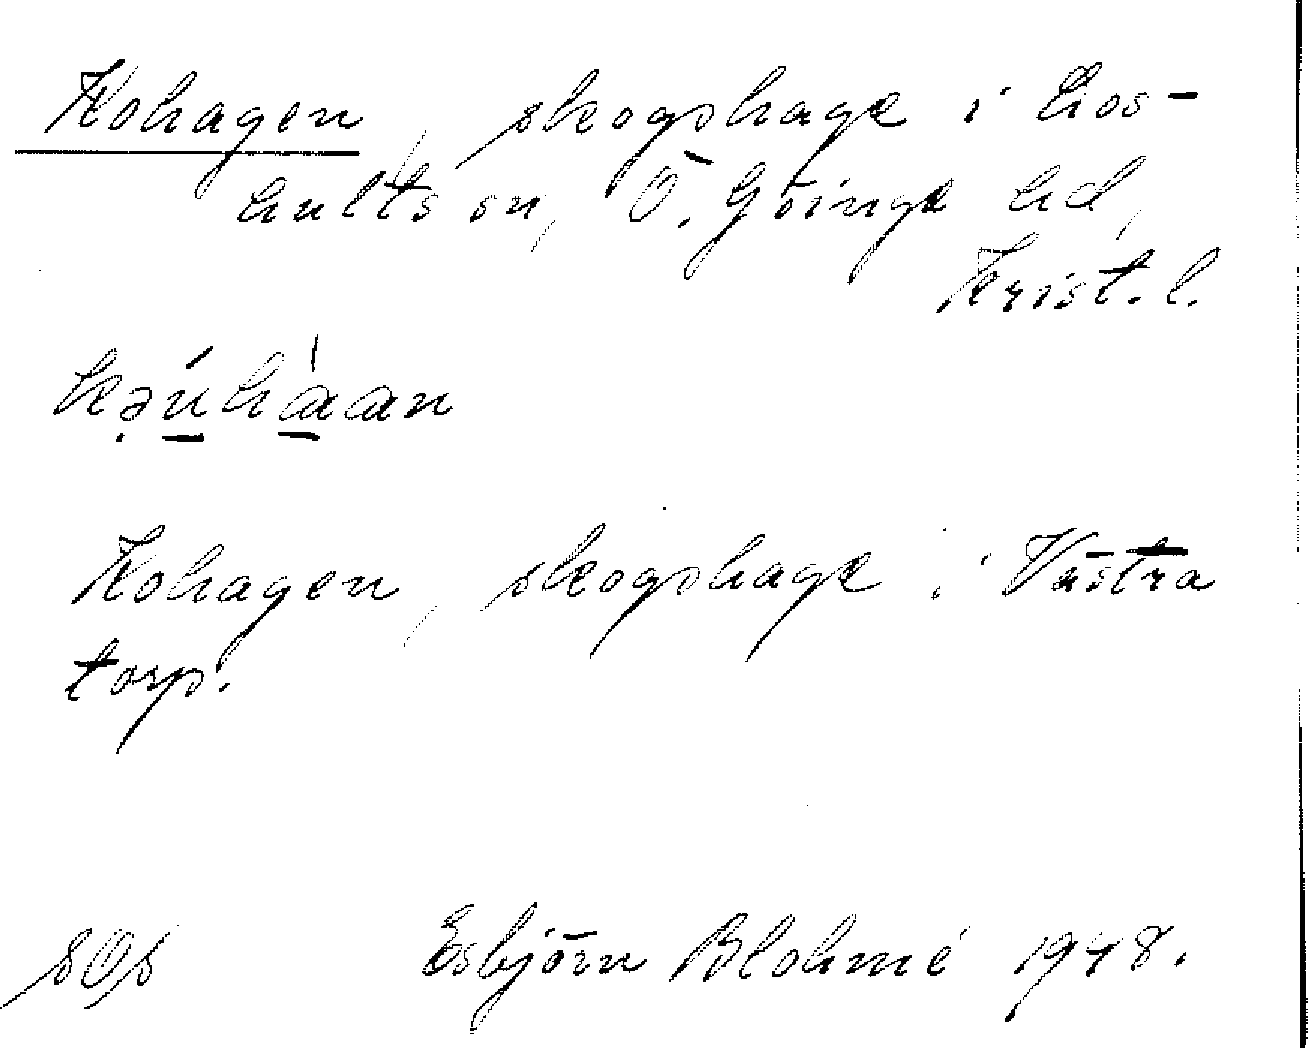 Kohagen, skogshage i Los-
hults sn, Ö. Göinge hd,
Krist. l.
Kohagen, skogshage i Västra
torp.
Esbjörn Blohmé 1948.